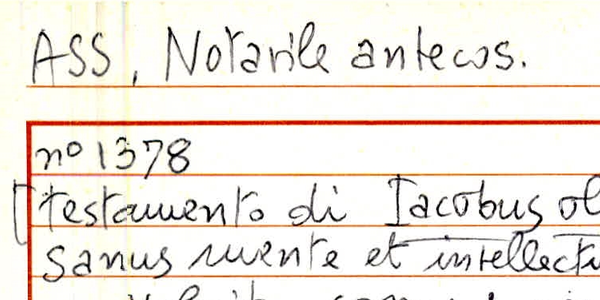 ASS, Notarile antecos.
nº 1378
[testamento di Iacobus ol
sanus mente et intellectu